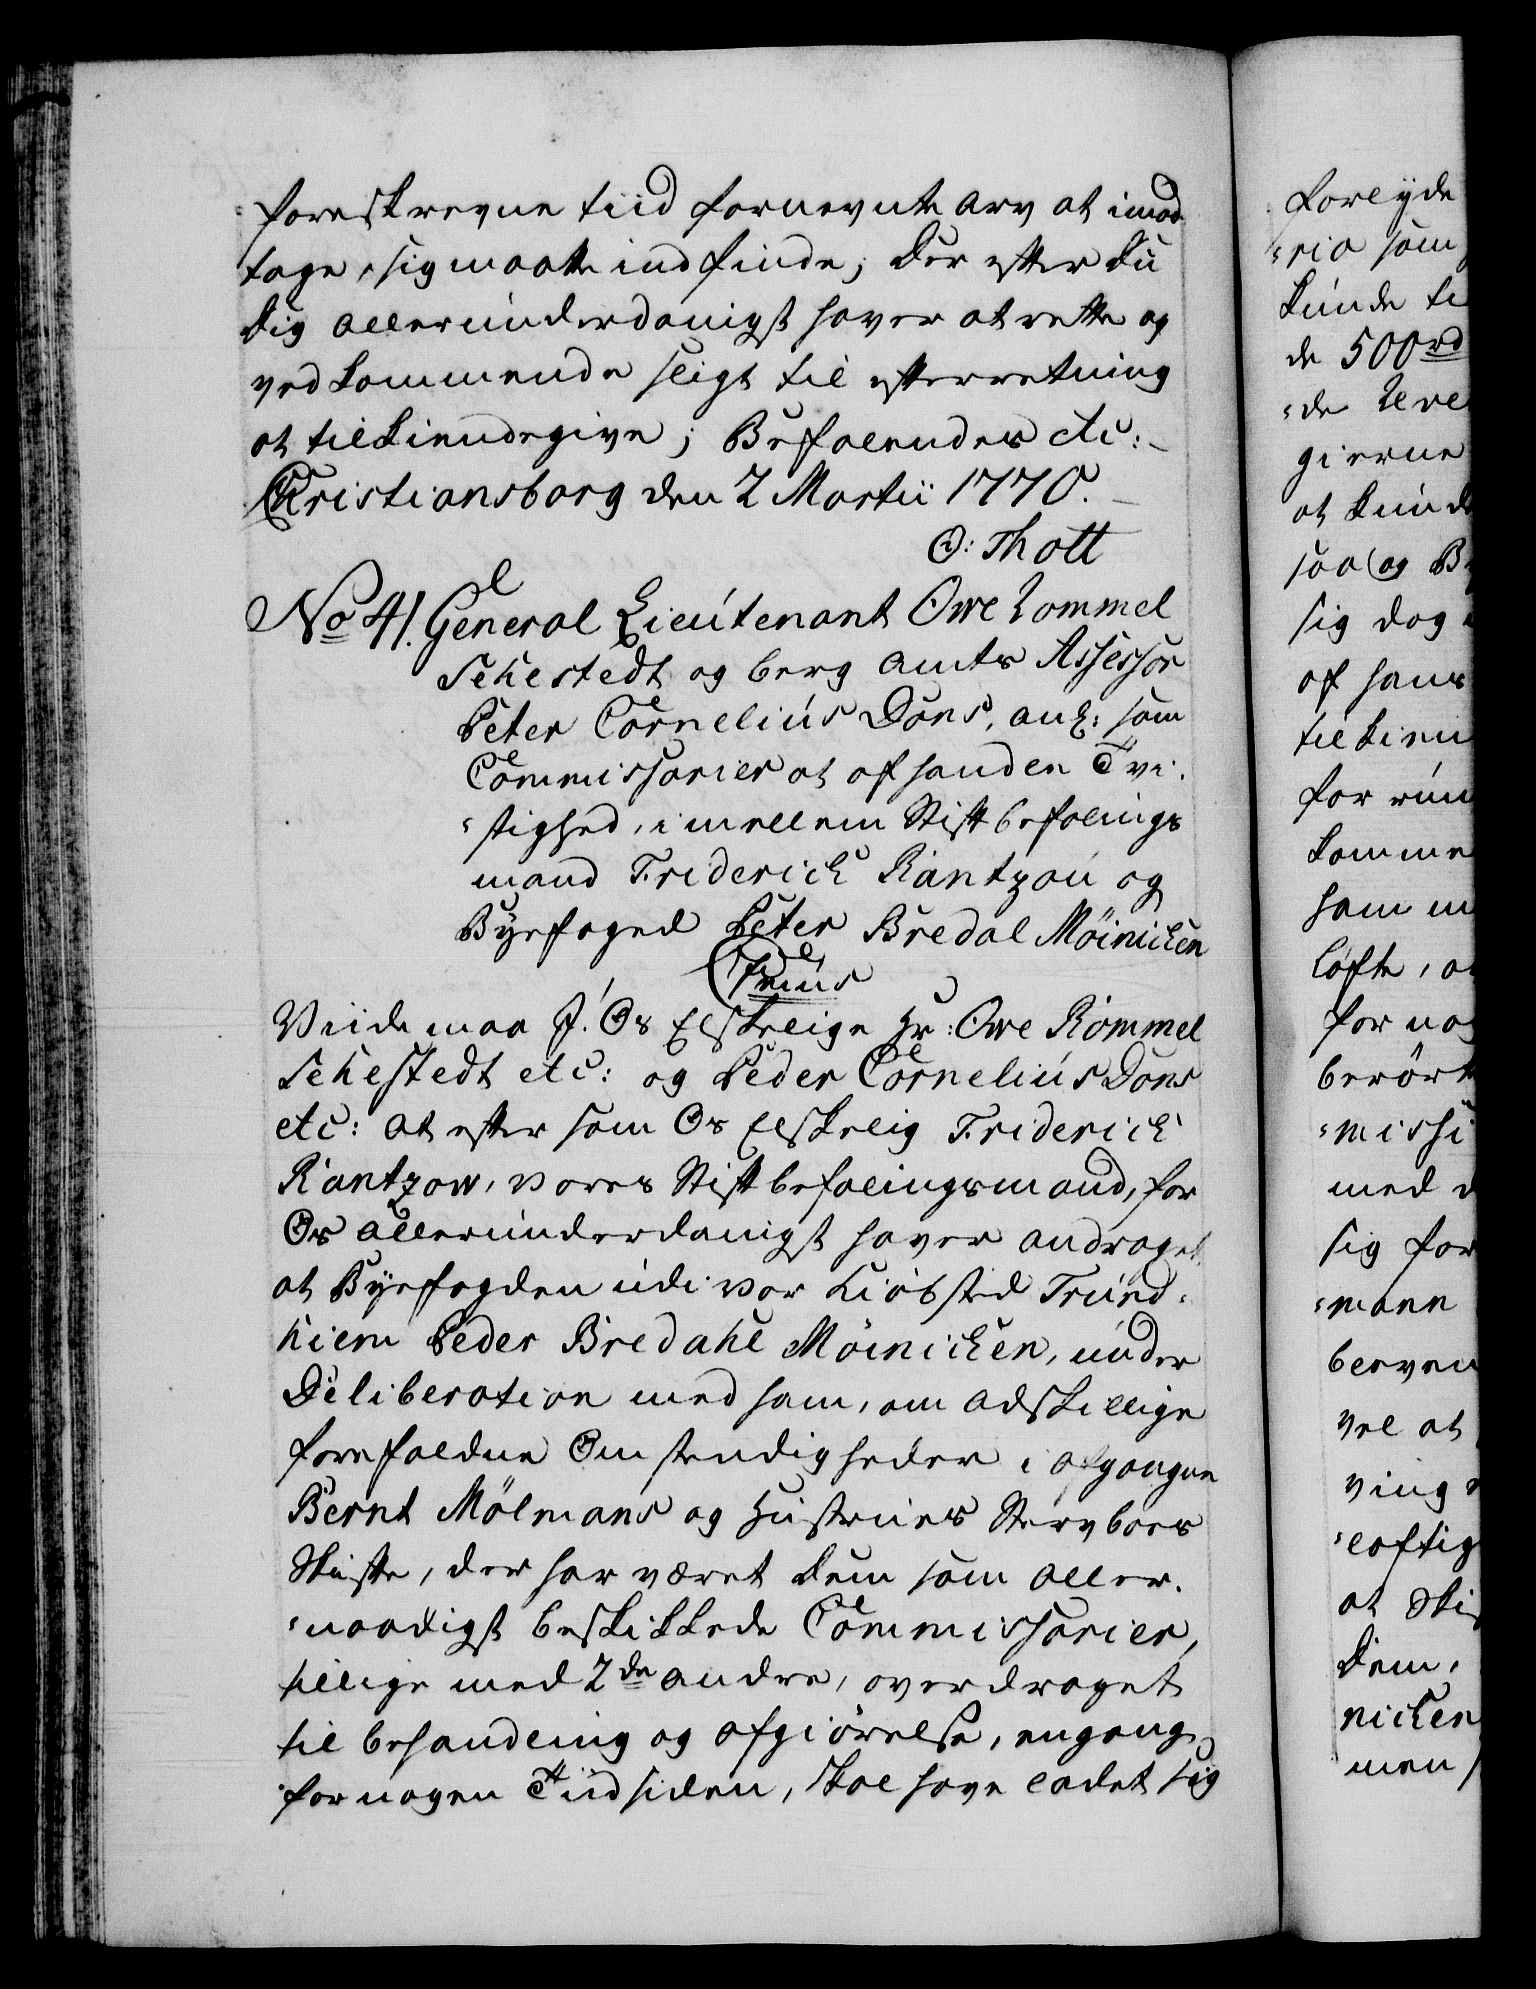 foreskrevne tiid fornevnte arv at imod-
tage, sig maatte indfinde; der efter du
dig allerunderdanigst haver at rette og
vedkommende sligt til efterretning
at tilkiendegive; Befalendes etc:
Christiansborg den 2 Martii 1770.
O: Thott
No 41. General Lieutenant Owe Rommel
Sehestedt og berg amts Assessor
Peter Cornelius Dons, anl: som
Commissarier at afhandle Tvi-
stighed, imellem Stiftbefalings
mand Friderich Rantzau og
Byefoged Peter Bredal Möinichen
Viide maa I. Os Elskelige Hr: Owe Rommel
Sehestedt etc: og Peder Cornelius Dons
etc: at eftersom Os Elskelig Friderich
Rantzow, vores Stiftbefalingsmand, for
Os allerunderdanigst haver andraget
at Byefogden udi vor Kiöbsted Trund-
hiem Peder Bredahl Möinichen, under
Deliberation med ham, om adskillige
forefaldne Omstendigheder i afgangne
Bernt Mölmans og Hustrues Stervboes
Skifte, der har været dem som aller-
naadigst beskikkede Commissarier,
tillige med 2de andre, overdraget
til behandling og afgiörelse, engang
for nogen Tiid siden, skal have ladet sig
forlyde
rio som
kunde ti
de 500rd
gierne
at kunde
saa og B
sig dog
af hans
tilkien
for rin
komme
ham m
löfte, o
for no
berört
missi
med d
sig for
mann
bleven
vel at
ving
laftig
at Ski
dem,
nichen
men